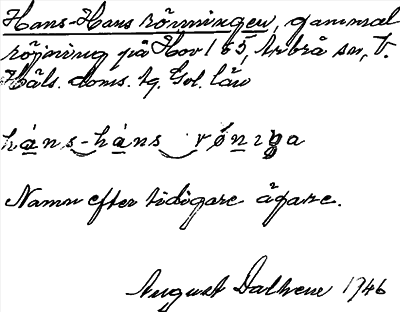 Hans-Hans rönningen, gammal
röjning på Hov 1 o 5, Arbrå sn, V.
Häls. doms. tg. Gvl. län
háns-háns rǿniga
Namn efter tidigare ägare.
August 1946